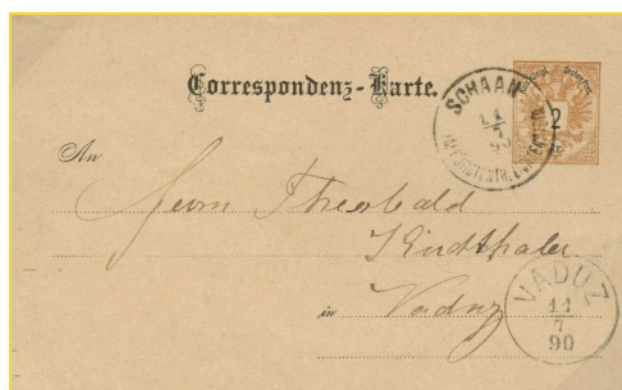 Correspondenz-Karte.
SCHAAN
11
7
90
2
An
Herrn Theobald
in Vaduz
VADUZ
11
7
90